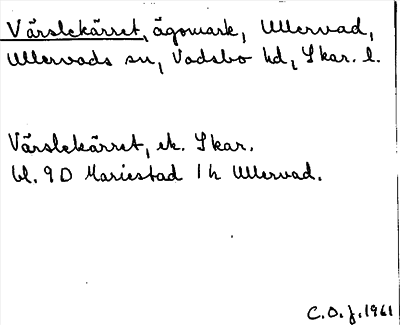 Värslekärret, ägomark, Ullervad,
Ullervads sn, Vadsbo hd, Skar. l.
Värslekärret, ek. Skar.
bl. 9D Mariestad 1 h Ullervad.
C.O.J. 1961